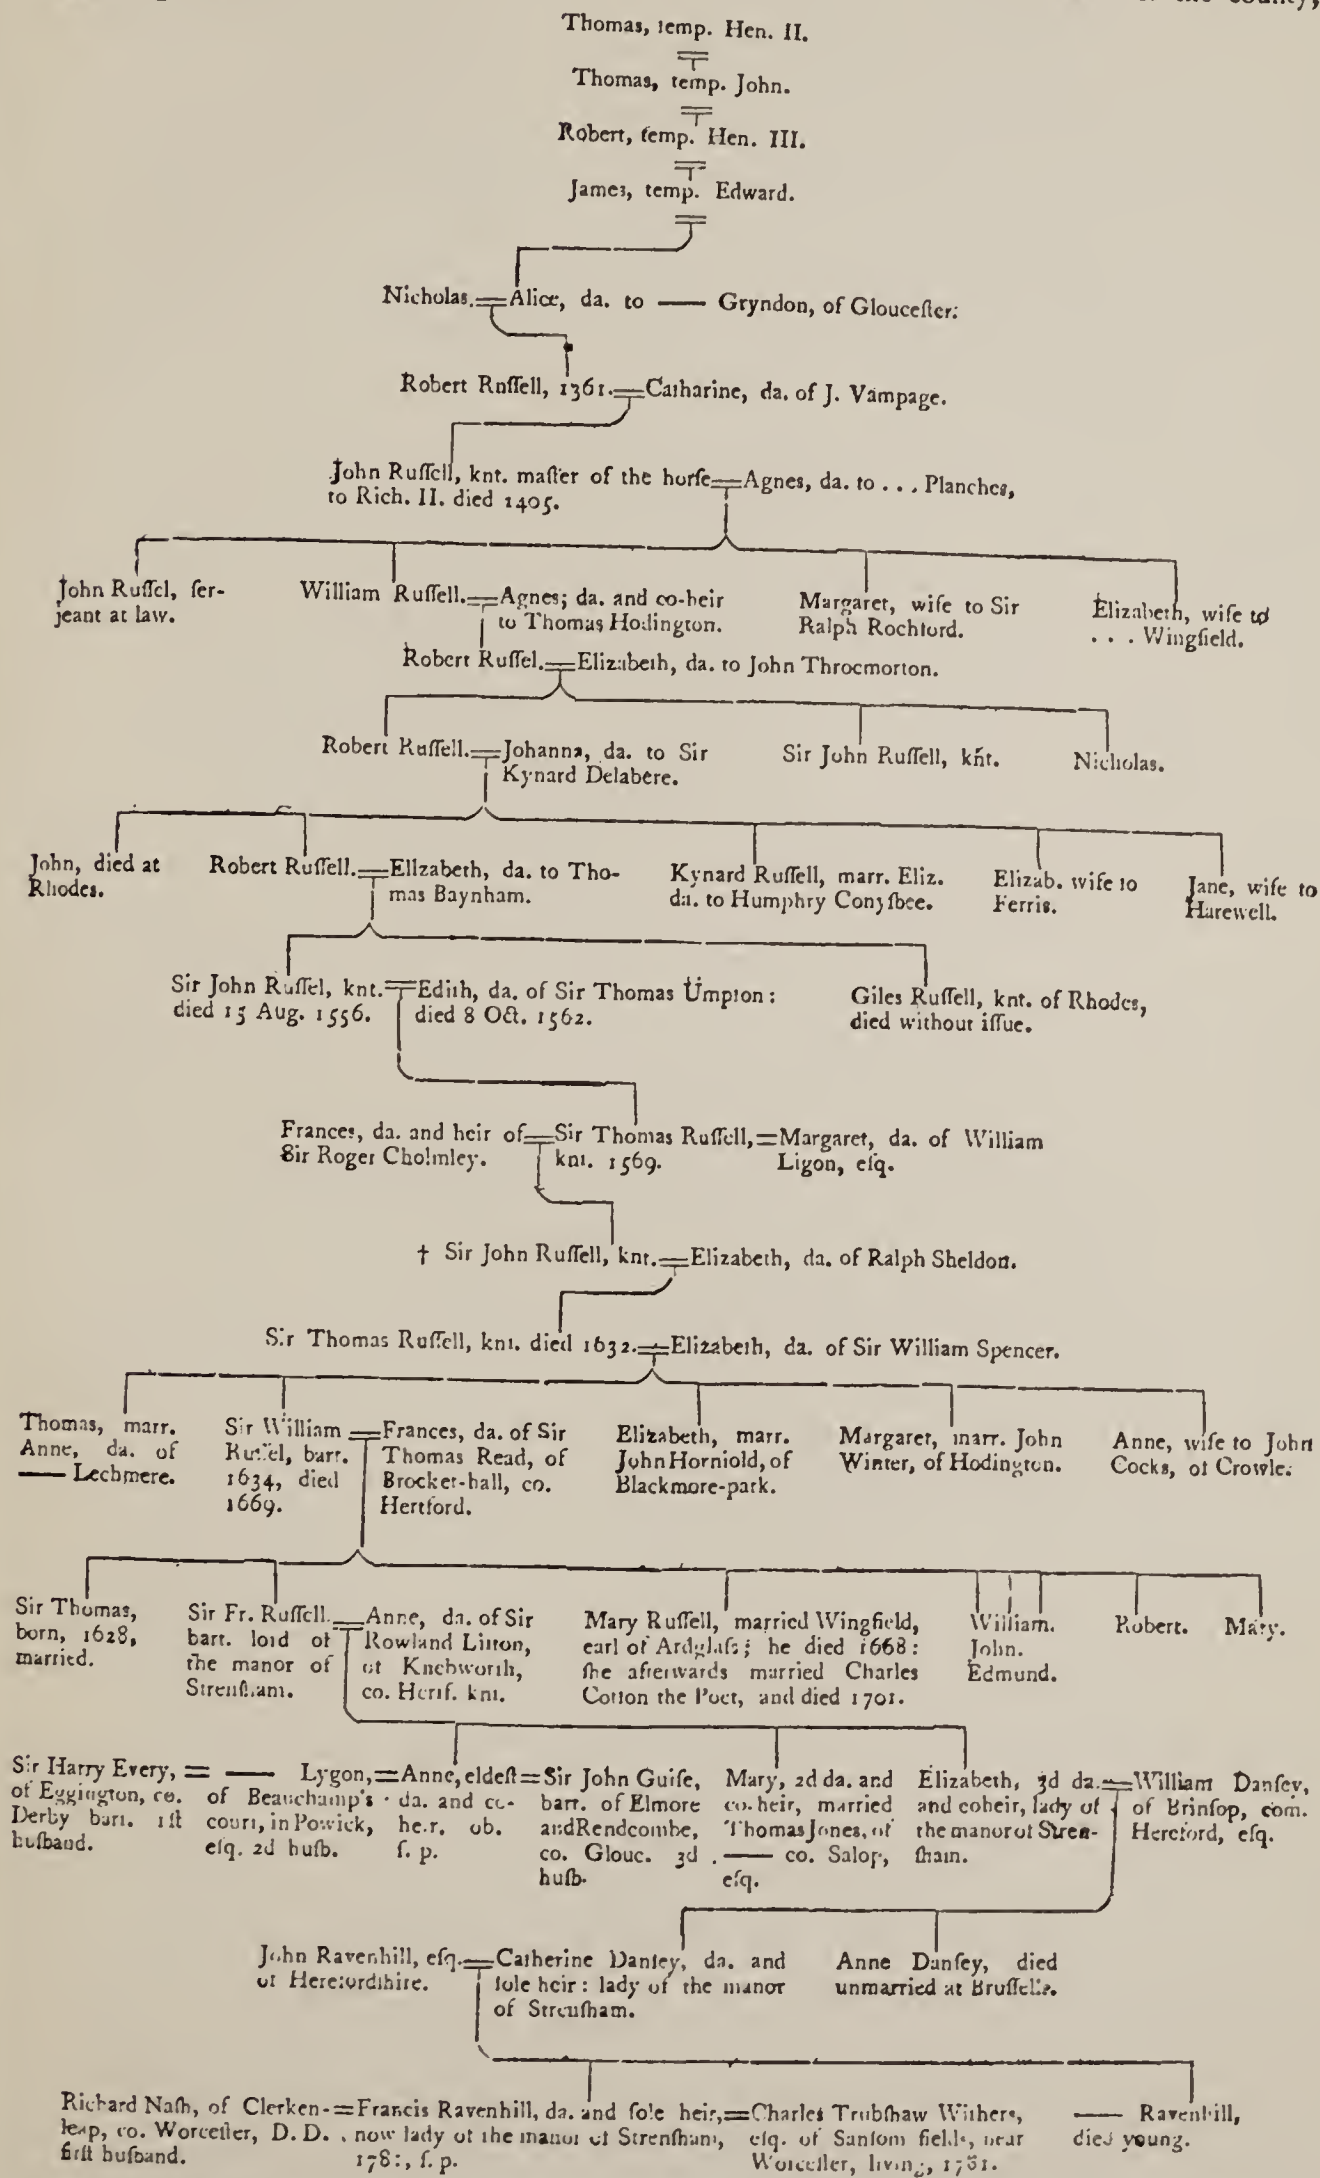 the county,
Thomas, temp. Hen. II.
Thomas, temp. John.
Robert, temp. Hen. III.
James, temp. Edward.
Nicholas. Alice, da. to —— Gryndon, of Glouceſter:
Robert Rnſſell, 1361. Catharine, da. of J. Vampage.
John Ruſſell, knt. maſter of the horſe Agnes, da. to . . . Planches,
to Rich. II. died 1405.
John Ruſſel, ſer-
jeant at law.
William Ruſſell. Agnes; da. and co-heir
to Thomas Hodington.
Margaret, wife to Sir
Ralph Rochford.
Elizabeth, wife to
. . . Wingfield.
Robert Ruſſel. Elizabeth, da. to John Throcmorton.
Robert Ruſſell. Johanna, da. to Sir
Kynard Delabere.
Sir John Ruſſell, knt.
Nicholas.
John, died at
Rhodes.
Robert Ruſſell. Elizabeth, da. to Tho-
mas Baynham.
Kynard Ruſſell, marr. Eliz.
da. to Humphry Conyſbee.
Elizab. wife to
Ferris.
Jane, wife to
Harewell.
Sir John Ruſſel, knt.
died 15 Aug. 1556.
Edith, da. of Sir Thomas Umpton:
died 8 Oct. 1562.
Giles Ruſſell, knt. of Rhodes,
died without iſſue.
Frances, da. and heir of
Sir Roger Cholmley.
Sir Thomas Ruſſell,
knt. 1569.
=Margaret, da. of William
Ligon, eſq.
† Sir John Ruſſell, knt. Elizabeth, da. of Ralph Sheldon.
Sir Thomas Ruſſell, knt. died 1632. Elizabeth, da. of Sir William Spencer.
Thomas, marr.
Anne, da. of
—— Lechmere.
Sir William
Ruſſel, bart.
1634, died
1669.
Frances, da. of Sir
Thomas Read, of
Brocket-hall, co.
Hertford.
Elizabeth, marr.
John Horniold, of
Blackmore-park.
Margaret, marr. John
Winter, of Hodington.
Anne, wife to John
Cocks, of Crowle.
Sir Thomas,
born, 1628,
married.
Sir Fr. Ruſſell.
bart. lord of
the manor of
Strenſham.
Anne, da. of Sir
Rowland Litton,
of Knebworth,
co. Hertf. knt.
Mary Ruſſell, married Wingfield,
earl of Ardglaſs; he died 1668:
ſhe afterwards married Charles
Cotton the Poet, and died 1701.
William.
John.
Edmund.
Robert.
Mary.
Sir Harry Every, =
of Eggington, co.
Derby bart. 1ſt
huſband.
—— Lygon,
of Beauchamp's
court, in Powick,
eſq. 2d huſb.
=Anne, eldeſt
da. and co-
heir. ob.
ſ. p.
=Sir John Guiſe,
bart. of Elmore
and Rendcombe,
co. Glouc. 3d
huſb.
Mary, 2d da. and
co.heir, married
Thomas Jones, of
—— co. Salop,
eſq.
Elizabeth, 3d da.
and coheir, lady of
the manor of Stren-
ſham.
William Danſey,
of Brinſop, com.
Hereford, eſq.
John Ravenhill, eſq.
of Herefordſhire.
Catherine Danſey, da. and
ſole heir: lady of the manor
of Strenſham.
Anne Danſey, died
unmarried at Bruſſells.
Richard Naſh, of Clerken-
leap, co. Worceſter, D. D.
firſt huſband.
=Francis Ravenhill, da. and ſole heir,
now lady of the manor of Strenſham,
ſ. p.
=Charles Trubſhaw Withers,
eſq. of Sanſom fields, near
Worceſter, living, 1781.
—— Ravenhill,
died young.